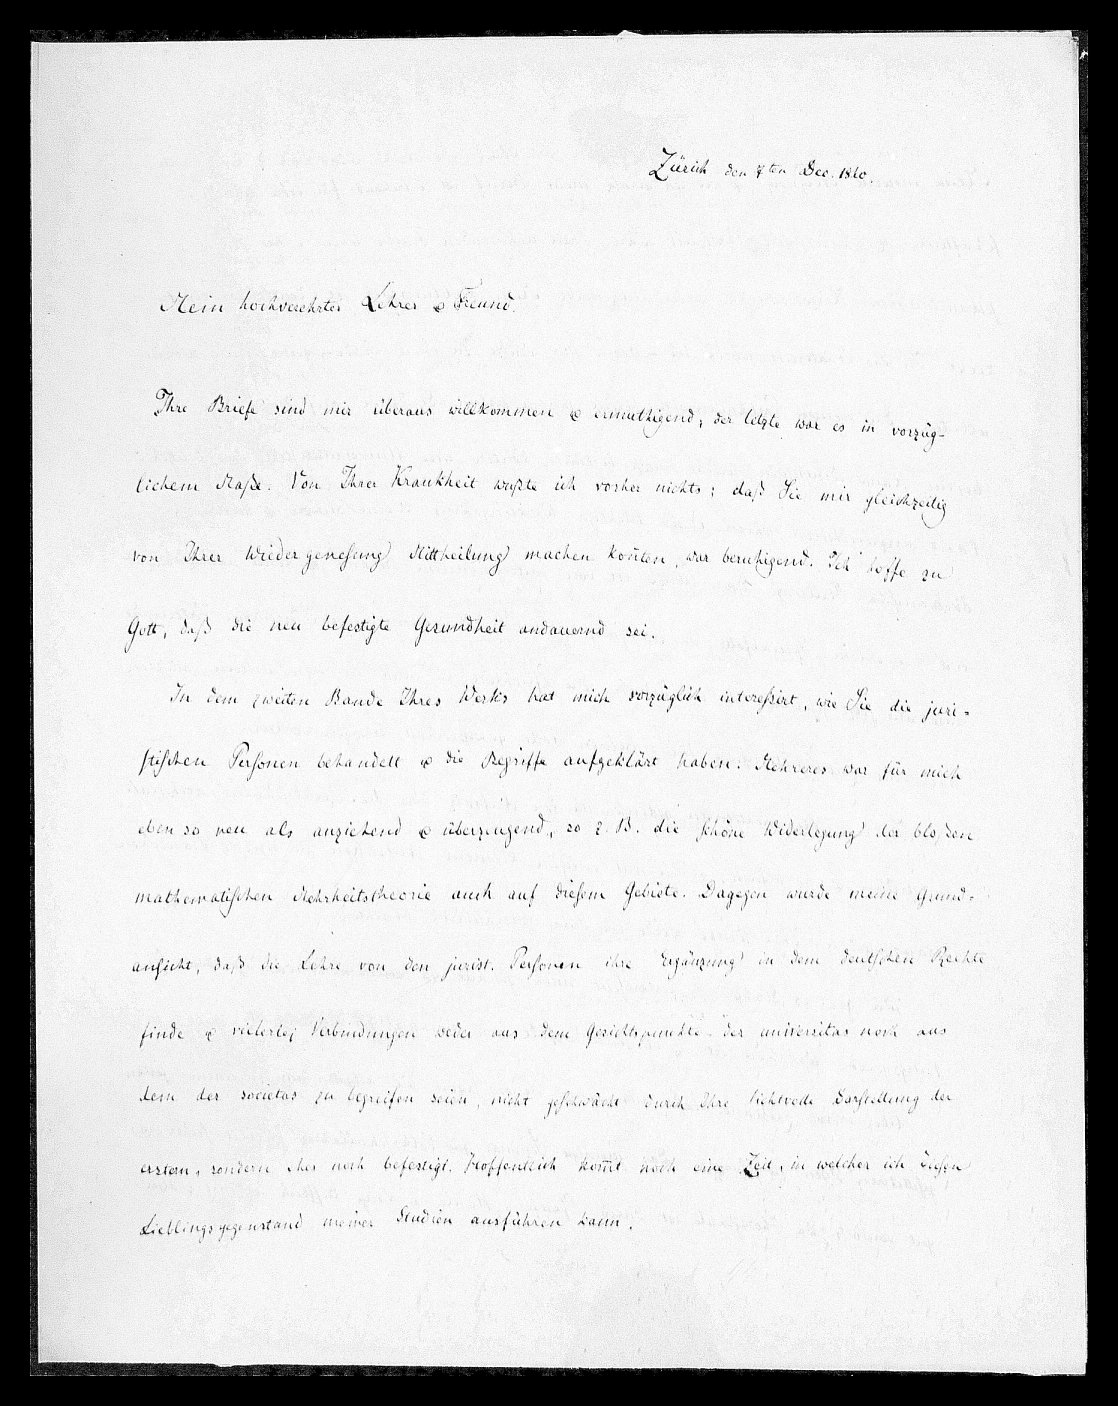 Zürich den 7ten Dec. 1840.
Mein hochverehrter Lehrer & Freund.
Ihre Briefe sind mir überaus willkommen & ermuthigend; der letzte war es in vorzüg-
lichem Maße. Von Ihrer Krankheit wußte ich vorher nichts; daß Sie mir gleichzeitig
von Ihrer Wiedergenesung Mittheilung machen kon̄ten, war beruhigend. Ich hoffe zu
Gott, daß die neu befestigte Gesundheit andauernd sei.
In dem zweiten Bande Ihres Werks hat mich vorzüglich interessirt, wie Sie die juri-
stischen Personen behandelt & die Begriffe aufgeklärt haben. Mehreres war für mich
eben so neu als anziehend & überzeugend, so z. B. die schöne Widerlegung der bloßen
mathematischen Mehrheitstheorie auch auf diesem Gebiete. Dagegen wurde meine Grund-
ansicht, daß die Lehre von den jurist. Personen ihre Ergänzung in dem deutschen Rechte
finde & vielerlej Verbindungen weder aus dem Gesichtspunkte der universitas noch aus
dem der societas zu begreifen seien, nicht geschwächt durch Ihre lichtvolle Darstellung der
erstern, sondern eher noch befestigt. Hoffentlich kom̄t noch eine Zeit, in welcher ich diesen
Lieblingsgegenstand meiner Studien ausführen kann.